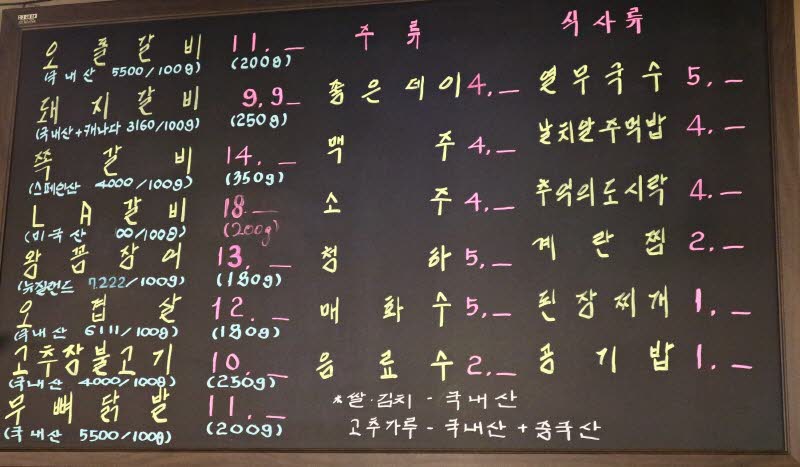 오돌갈비 11.—
(국내산 5500/100g) (200g)
돼지갈비 9.9—
(국내산+캐나다 3160/100g) (250g)
쪽갈비 14.—
(스페인산 4000/100g) (350g)
LA갈비 18.—
(미국산 00/100g) (200g)
왕꼼장어 13.—
(뉴질랜드 7222/100g) (180g)
오겹살 12.—
(국내산 6111/100g) (180g)
고추장불고기 10.—
(국내산 4000/100g) (250g)
무뼈닭발 11.—
(국내산 5500/100g) (200g)
주류
좋은데이 4.—
맥주 4.—
소주 4.—
청하 5.—
매화수 5.—
음료수 2.—
식사류
열무국수 5.—
날치알주먹밥 4.—
추억의도시락 4.—
계란찜 2.—
된장찌개 1.—
공기밥 1.—
*쌀·김치 - 국내산
고추가루 - 국내산 + 중국산